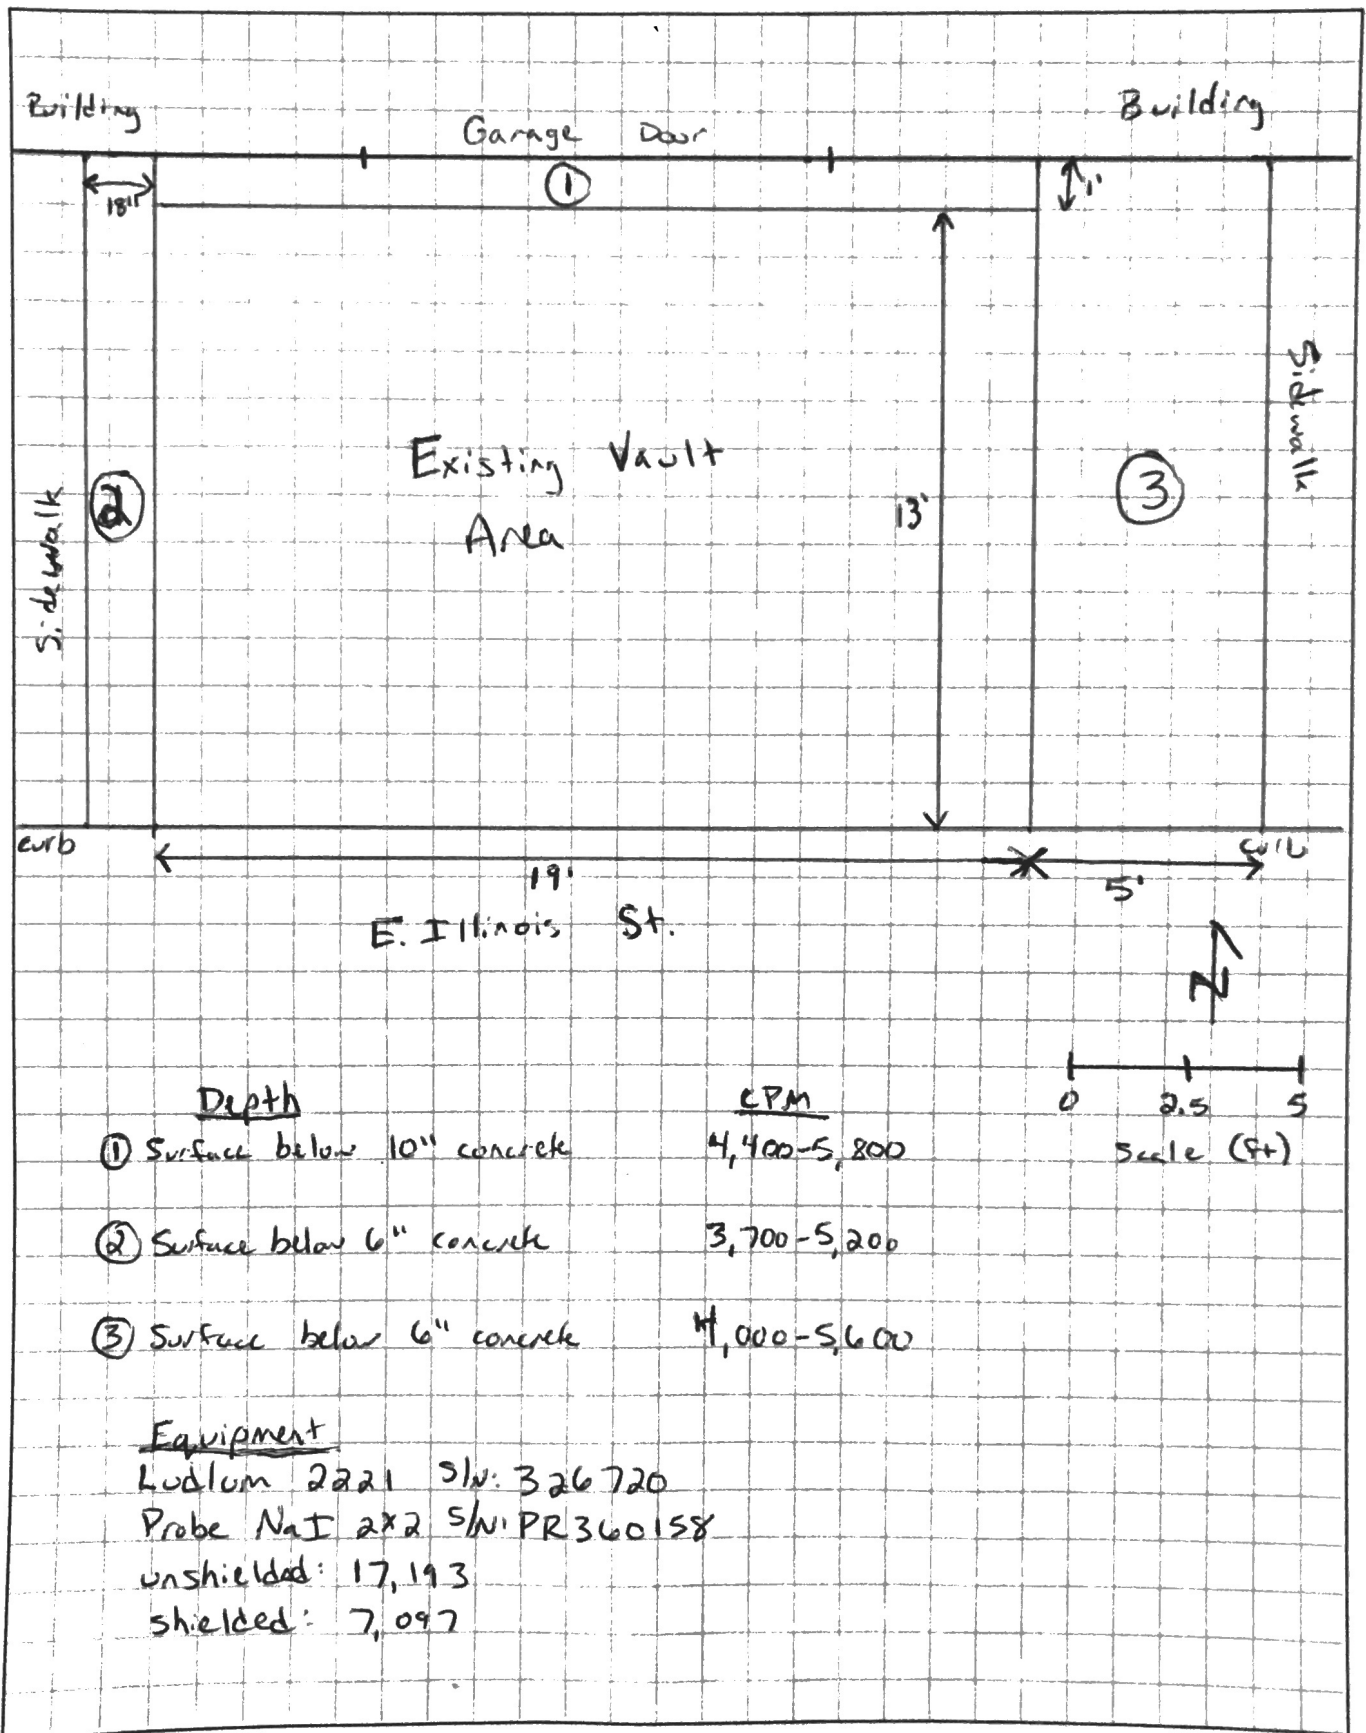 Building
Building
Garage Door
①
18"
1'
Existing Vault
Area
Sidewalk
②
13'
③
Sidewalk
curb
curb
19'
5'
E. Illinois St.
N
0 2.5 5
Scale (ft)
Depth CPM
① Surface below 10" concrete 4,400-5,800
② Surface below 6" concrete 3,700-5,200
③ Surface below 6" concrete 4,000-5,600
Equipment
Ludlum 2221 S/N: 326720
Probe NaI 2x2 S/N: PR360158
unshielded: 17,193
shielded: 7,097